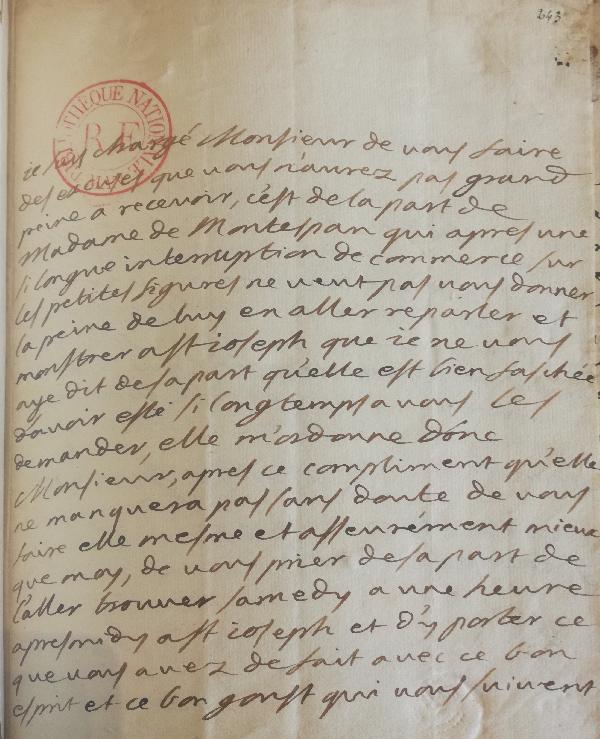 243
BIBLIOTHEQUE NATIONALE
R F
ie suis chargé Monsieur de vous faire
des excuses que vous n'aurez pas grand
peine a recevoir, c'est de la part de
Madame de Montespan qui apres une
si longue interruption de commerce sur
les petites figures ne veut pas vous donner
la peine de luy en aller reparler et
monstrer a St ioseph que ie ne vous
aye dit de sa part qu'elle est bien faschée
d'avoir esté si longtemps a vous les
demander, elle m'ordonne donc
Monsieur, apres ce compliment qu'elle
ne manquera pas sans doute de vous
faire elle mesme et asseurément mieux
que moy, de vous prier de sa part de
l'aller trouver samedy a une heure
apresmidy a St ioseph et d'y porter ce
que vous avez de fait avec ce bon
esprit et ce bon goust qui vous suivent